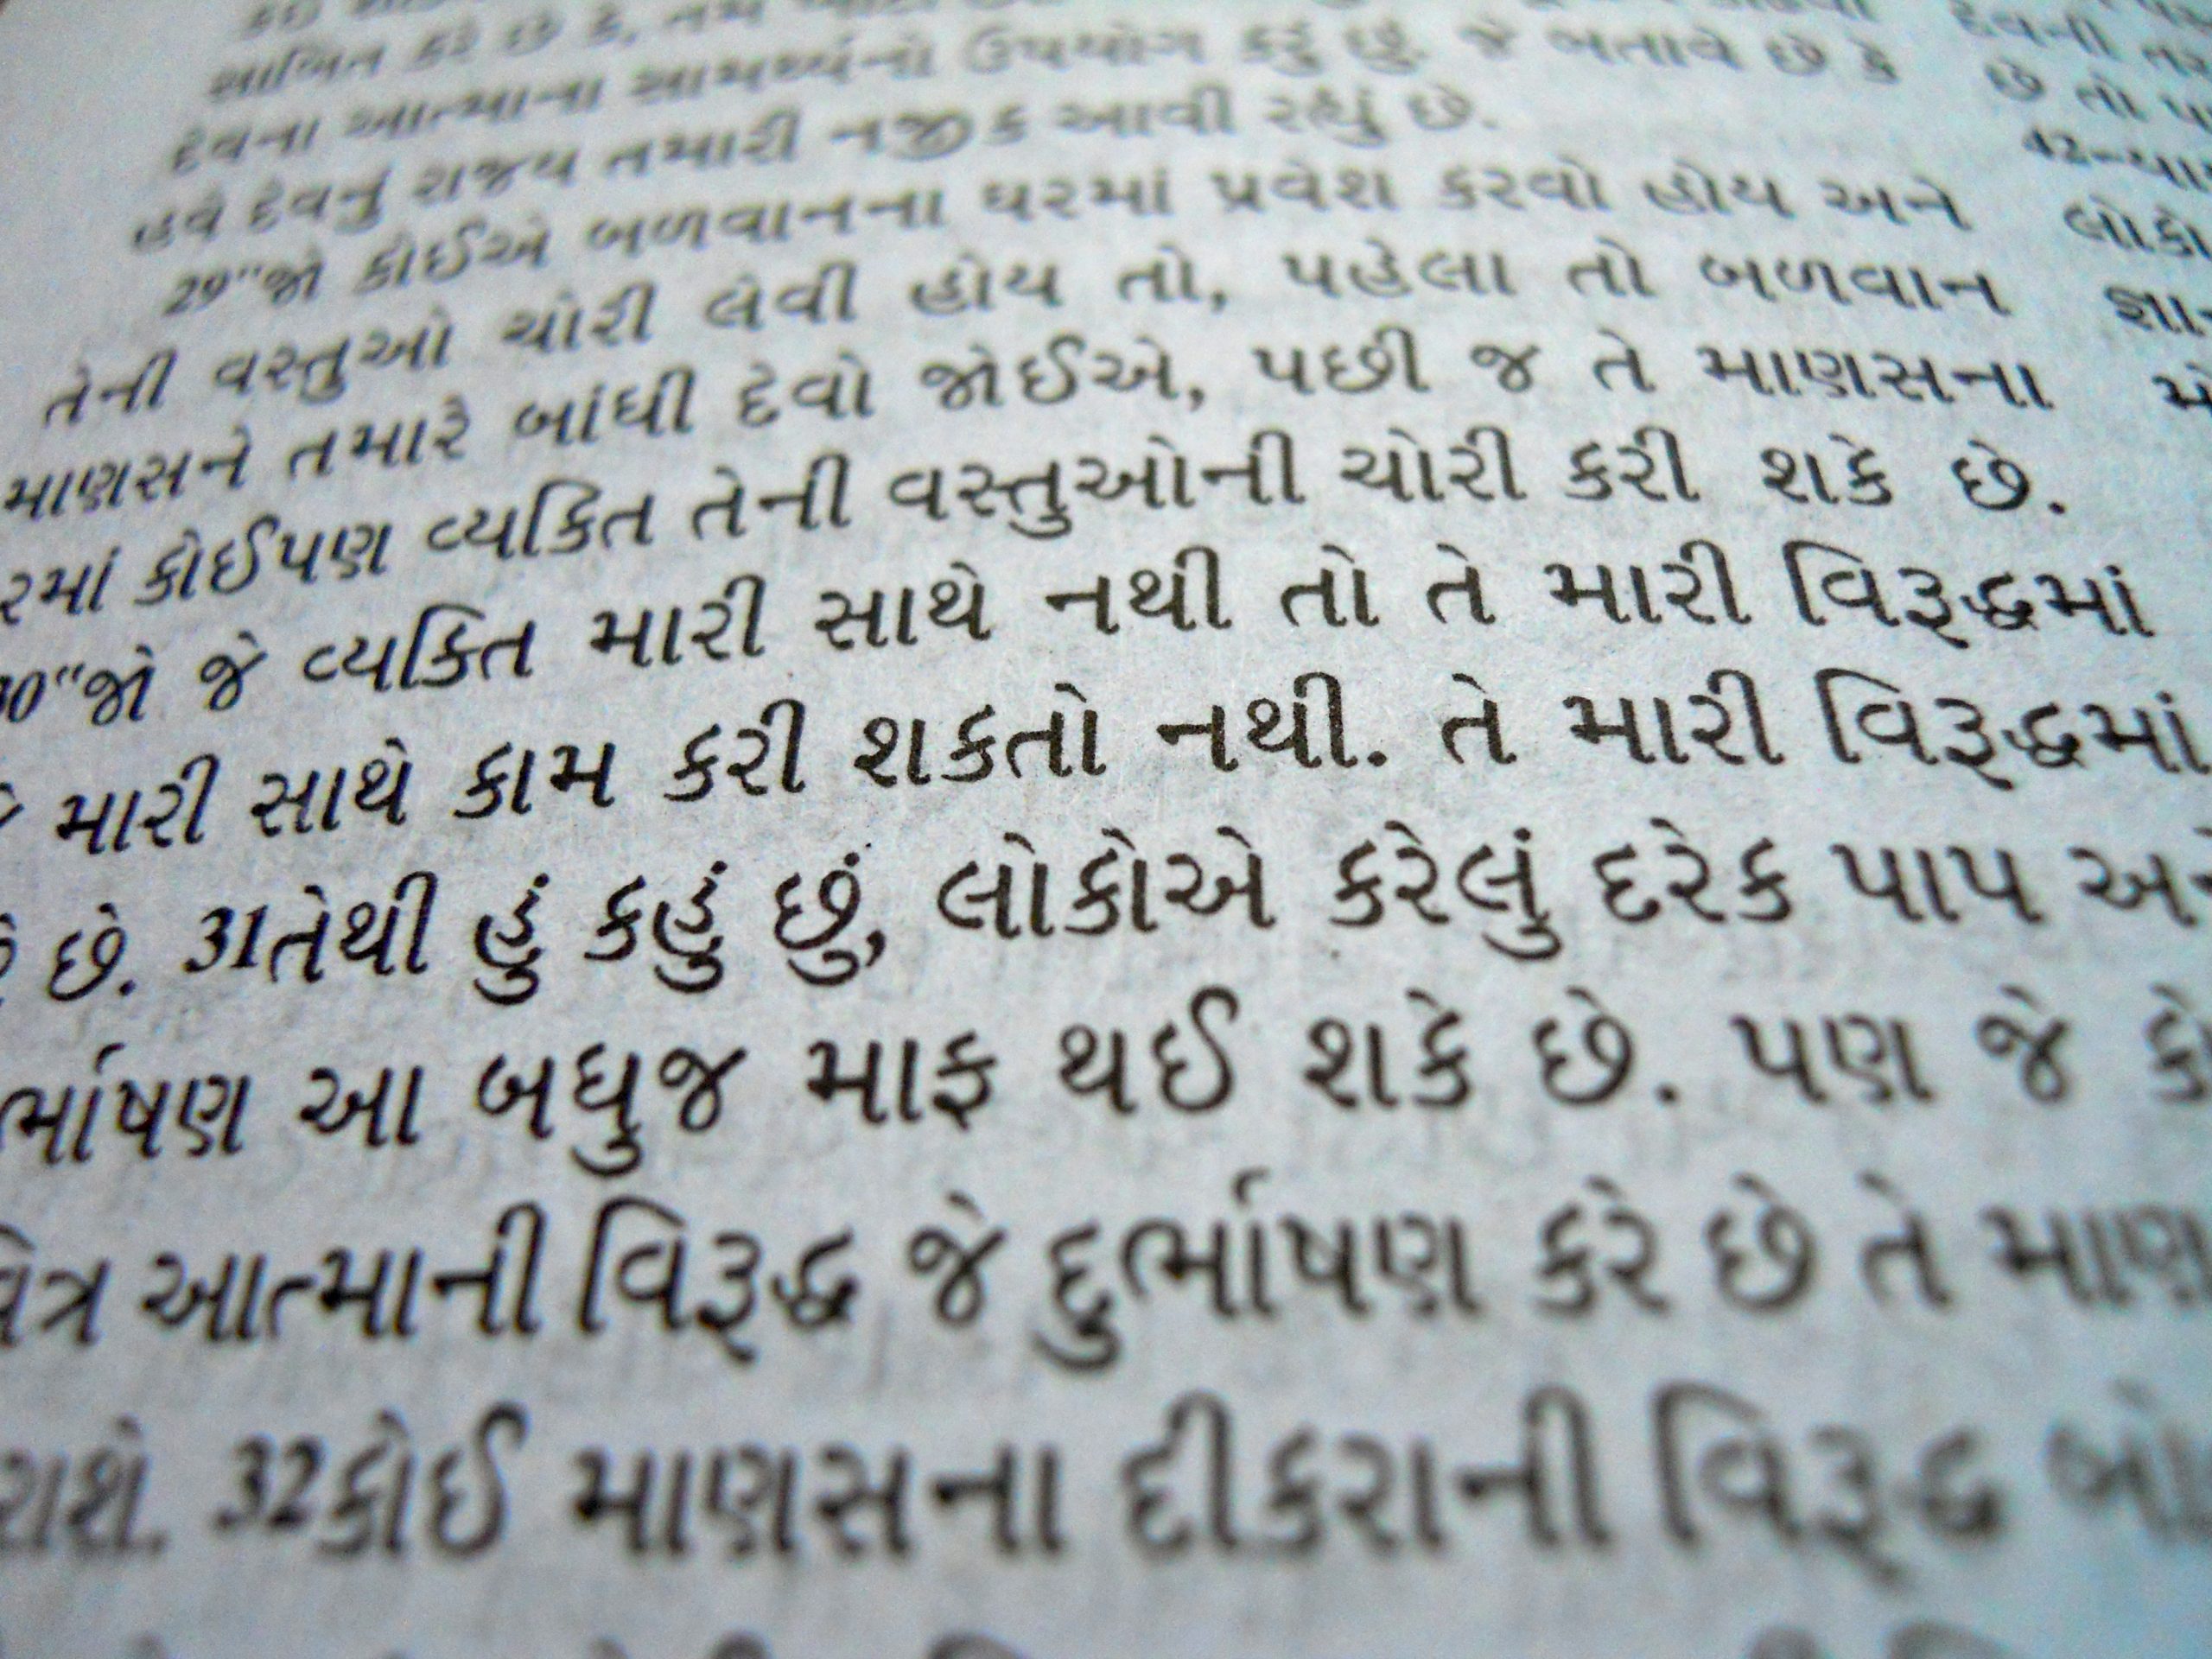 સાબિત કરે છે કે, તમે
દેવના આત્માના સામર્થ્યનો ઉપયોગ કરું છું. જે બતાવે છે કે
હવે દેવનું રાજ્ય તમારી નજીક આવી રહ્યું છે.
29"જો કોઈએ બળવાનના ઘરમાં પ્રવેશ કરવો હોય અને
તેની વસ્તુઓ ચોરી લેવી હોય તો, પહેલા તો બળવાન
માણસને તમારે બાંધી દેવો જોઈએ, પછી જ તે માણસના
રમાં કોઈપણ વ્યકિત તેની વસ્તુઓની ચોરી કરી શકે છે.
30"જો જે વ્યકિત મારી સાથે નથી તો તે મારી વિરૂદ્ધમાં
મારી સાથે કામ કરી શકતો નથી. તે મારી વિરૂદ્ધમાં
છે. 31તેથી હું કહું છું, લોકોએ કરેલું દરેક પાપ અને
ર્ભાષણ આ બધુજ માફ થઈ શકે છે. પણ જે કો
વિત્ર આત્માની વિરૂદ્ધ જે દુર્ભાષણ કરે છે તે માણ
રાશે. 32કોઈ માણસના દીકરાની વિરૂદ્ધ બો
દેવની
છે તો
લોકો